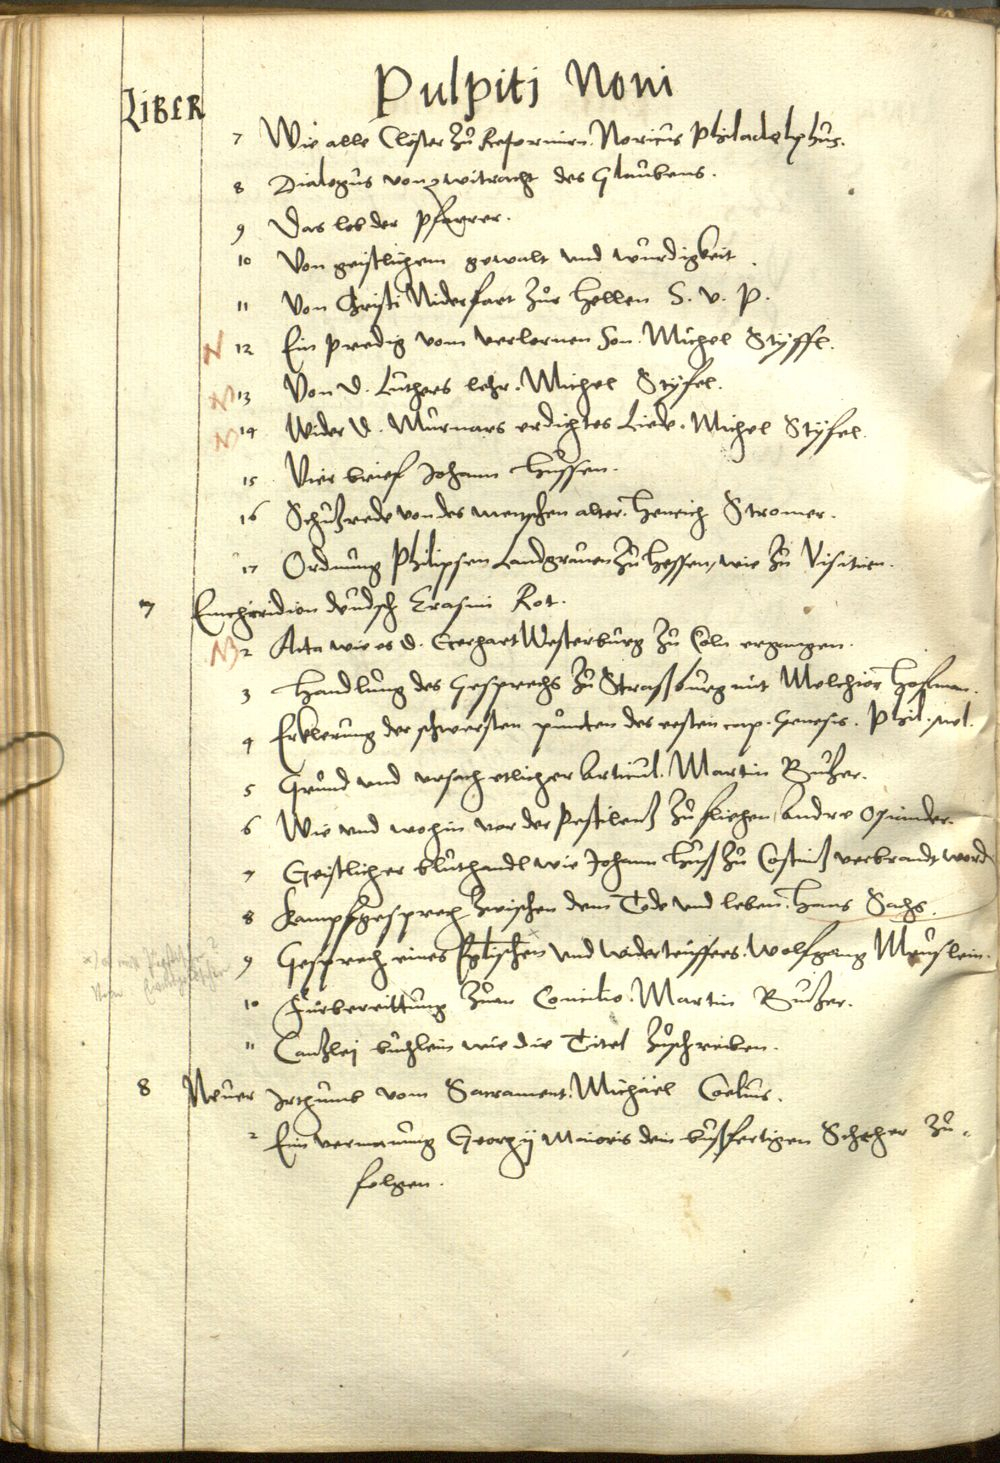 Pulpiti Noni
LIBER
7 Wie alle Clöster zů Reformirn. Noricus Philadelphus.
8 Dialogus von zwitracht des Glaubens.
9 Das lob der Pfarrer.
10 Von geistlichem gewalt und würdigkeit.
11 Von Christi Niderfart zůr Hellen S. v. P.
N 12 Ein predig vom verlornen Son. Michel Styffl.
N 13 Von D. Luthers lehr. Michel Styfel.
N 14 Wider D. Murnars erdichtes Liede. Michel Styfel.
15 Vier brief Johann Hussen.
16 Schutzrede von des menschen alter. Henrich Stromer.
17 Ordnung Philipsen Landgrauen zů Hessen, wie zů Visitirn.
7 Enchiridion deudsch Erasmi Rot.
N 2 Acta wie es D. Gerhart Westerburg zů Cöln ergangen.
3 Handlung des Gesprechs zů Straßburg mit Melchior Hofman.
4 Erklerung der schwersten puncten des ersten cap. Genesis. Phil. Mel.
5 Grund und ursach etlicher Articul. Martin Butzer.
6 Wie und wohin vor der Pestilentz zů fliehen, Andre Osiander.
7 Geistlicher bluthandl wie Johann Huß zů Costnitz verbrandt word
8 Kampfgesprech zwischen dem Tode und leben. Hans Sachs.
9 Gesprech eines und widerteuffers. Wolfgang Meuslein.
10 Fürbereittung zům Concilio. Martin Butzer.
11 Cantzlej büchlein wie die Titel zůschreiben.
8 Neuer Irthumb vom Sacrament. Michäel Coelius.
2 Ein vermanung Georgij Maioris dem bußfertigen Schecher zů
folgen.